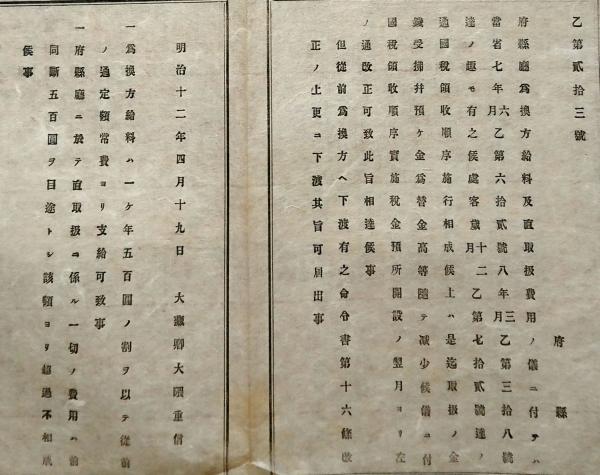 乙第貳拾三號
府縣
府縣廳爲換方給料及直取扱費用ノ儀ニ付テハ
當省七年六月乙第六拾貳號八年三月乙第三拾八號
達ノ趣モ有之候處客歲十二月乙第七拾貳號達ノ
通國税領收順序施行相成候上ハ是迄取扱ノ金
錢受拂幷預ケ金爲替金高等隨テ减少候儀ニ付
國税領收順序實施税金預所開設ノ翌月ヨリ左
ノ通改正可致此旨相達候事
但從前爲換方ヘ下渡有之命令書第十六條改
正ノ上更ニ下渡其旨可届出事
明治十二年四月十九日 大藏卿大隈重信
一爲換方給料ハ一ケ年五百圓ノ割ヲ以テ從前
ノ通定額常費ヨリ支給可致事
一府縣廳ニ於テ直取扱ニ係ル一切ノ費用ハ前
同斷五百圓ヲ目途トシ該額ヨリ超過不相成
候事